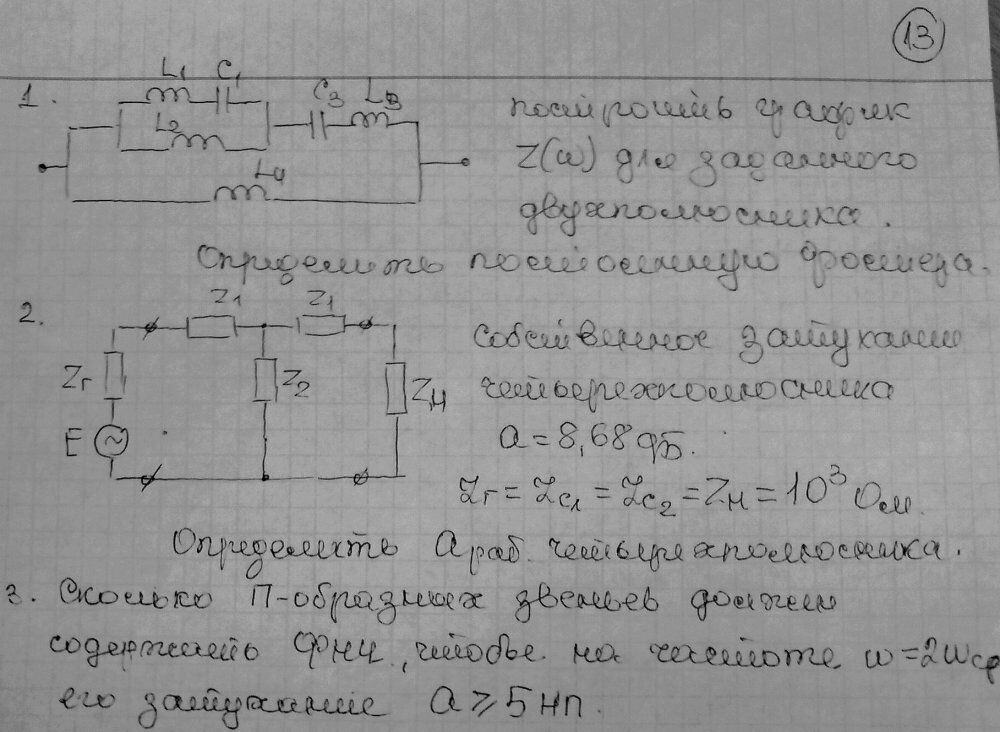 13
1.
L1 C1
C3 L3
L2
L4
построить график
Z(ω) для заданного
двухполюсника.
Определить постоянную Фостера.
2.
Z1 Z1
Zг Z2 Zн
E ~
Собственное затухание
четырехполюсника
a = 8,68 дБ.
Zг = Zc1 = Zc2 = Zн = 10³ Ом.
Определить aраб. четырехполюсника.
3. Сколько П-образных звеньев должен
содержать ФНЧ, чтобы на частоте ω = 2ωср
его затухание a ⩾ 5 Нп.